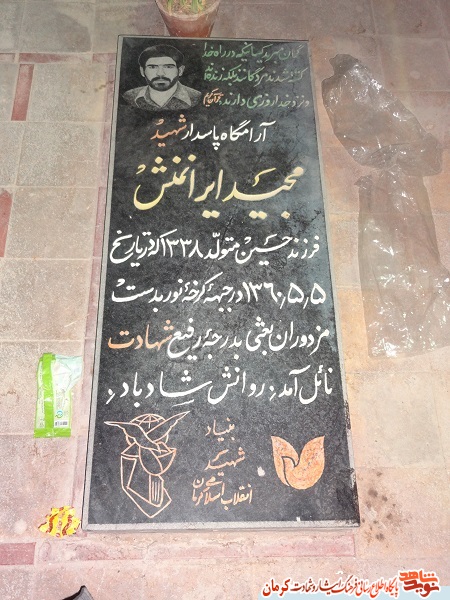 گمان مبرید کسانیکه در راه خدا
کشته شدند مردگانند بلکه زنده‌اند
و نزد خدا روزی دارند
آرامگاه پاسدار شهید
مجید ایرانمنش
فرزند حسین متولد ۱۳۳۸ که در تاریخ
۱۳۶۰٫۵٫۵ در جبهه کرخه نور بدست
مزدوران بعثی بدرجه رفیع شهادت
نائل آمد، روانش شاد باد،
بنیاد
شهید
انقلاب اسلامی کرمان
نوید شاهد
پایگاه اطلاع رسانی فرهنگ ایثار و شهادت کرمان